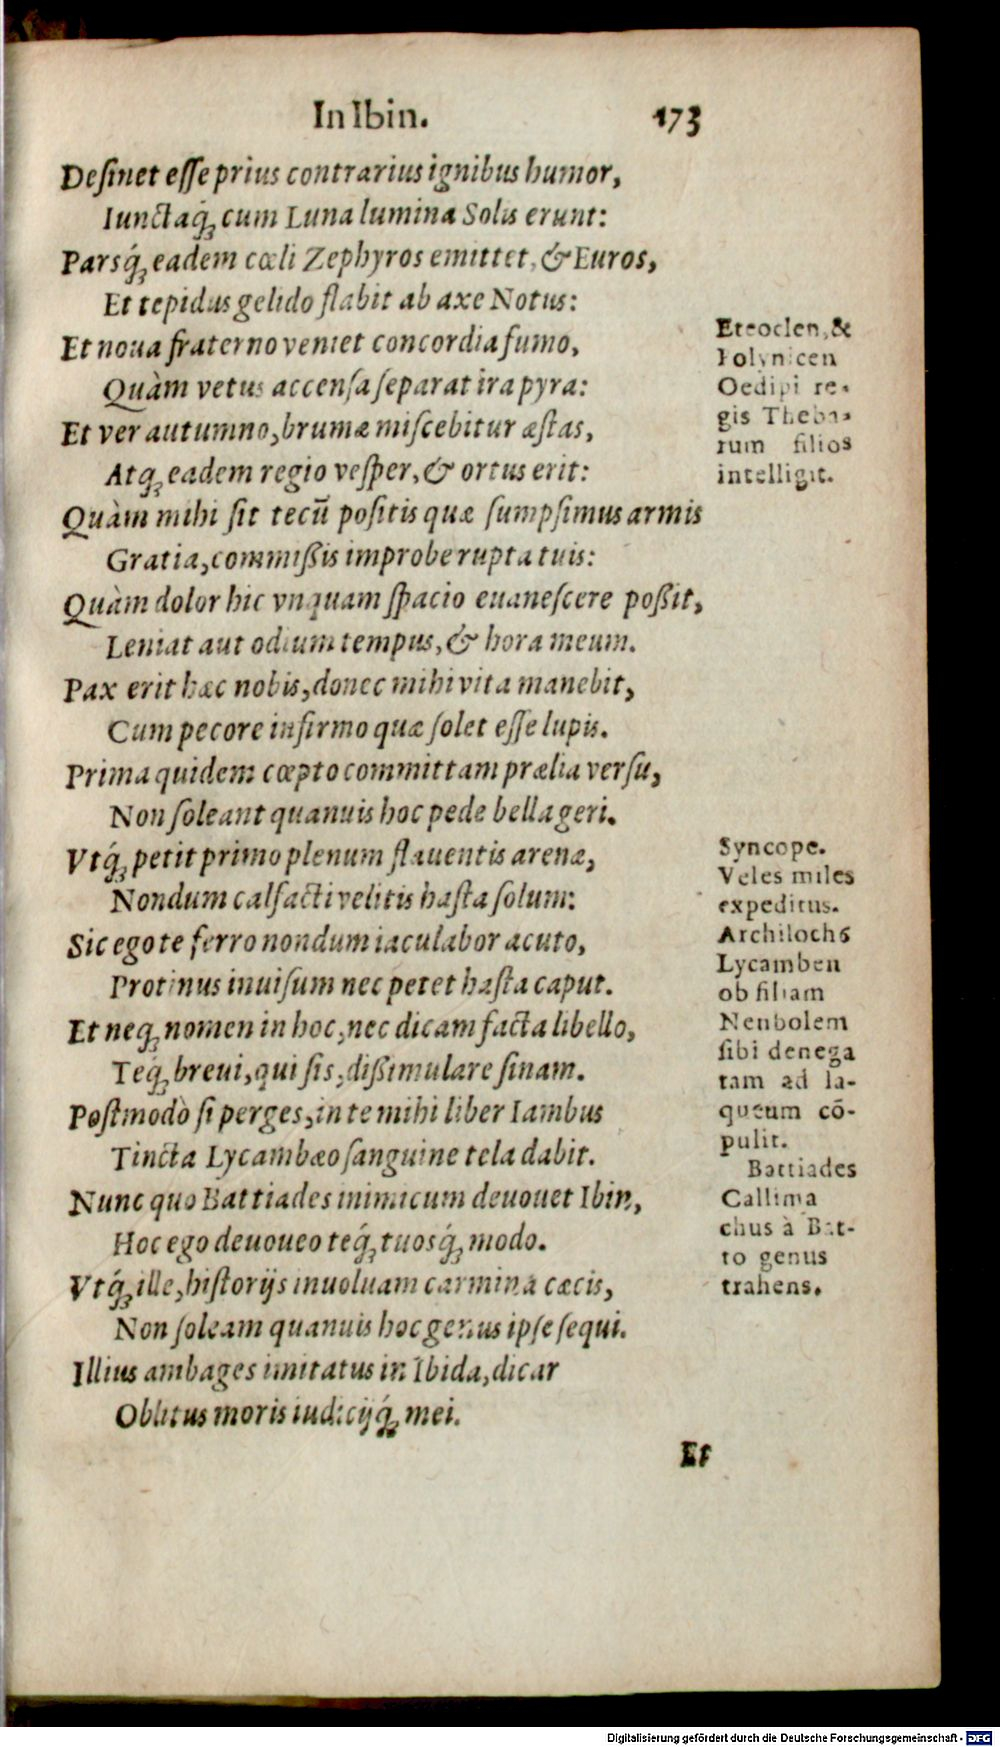 In Ibin. 173
Deſinet eſſe prius contrarius ignibus humor,
Iunctaq́; cum Luna lumina Solis erunt:
Parsq́; eadem cœli Zephyros emittet, & Euros,
Et tepidus gelido flabit ab axe Notus:
Et noua fraterno veniet concordia fumo,
Quàm vetus accenſa ſeparat ira pyra:
Et ver autumno, brumæ miſcebitur æſtas,
Atq; eadem regio veſper, & ortus erit:
Quàm mihi ſit tecū poſitis quæ ſumpſimus armis
Gratia, commißis improbe rupta tuis:
Quàm dolor hic vnquam ſpacio euaneſcere poßit,
Leniat aut odium tempus, & hora meum.
Pax erit hæc nobis, donec mihi vita manebit,
Cum pecore infirmo quæ ſolet eſſe lupis.
Prima quidem cœpto committam prælia verſu,
Non ſoleant quanuis hoc pede bella geri.
Vtq́; petit primo plenum flauentis arenæ,
Nondum calfacti velitis haſta ſolum:
Sic ego te ferro nondum iaculabor acuto,
Protinus inuiſum nec petet haſta caput.
Et neq; nomen in hoc, nec dicam facta libello,
Teq́; breui, qui ſis, dißimulare ſinam.
Poſtmodò ſi perges, in te mihi liber Iambus
Tincta Lycambæo ſanguine tela dabit.
Nunc quo Battiades inimicum deuouet Ibin,
Hoc ego deuoueo teq́; tuosq́; modo.
Vtq́; ille, hiſtorijs inuoluam carmina cæcis,
Non ſoleam quanuis hoc genus ipſe ſequi.
Illius ambages imitatus in Ibida, dicar
Oblitus moris iudicijq́; mei.
Et
Eteoclen, &
Polynicen
Oedipi re-
gis Theba-
rum filios
intelligit.
Syncope.
Veles miles
expeditus.
Archilochᵒ
Lycamben
ob filiam
Neubolem
ſibi denega
tam ad la-
queum cō-
pulit.
Battiades
Callima
chus à Bat-
to genus
trahens.
Digitalisierung gefördert durch die Deutsche Forschungsgemeinschaft - DFG